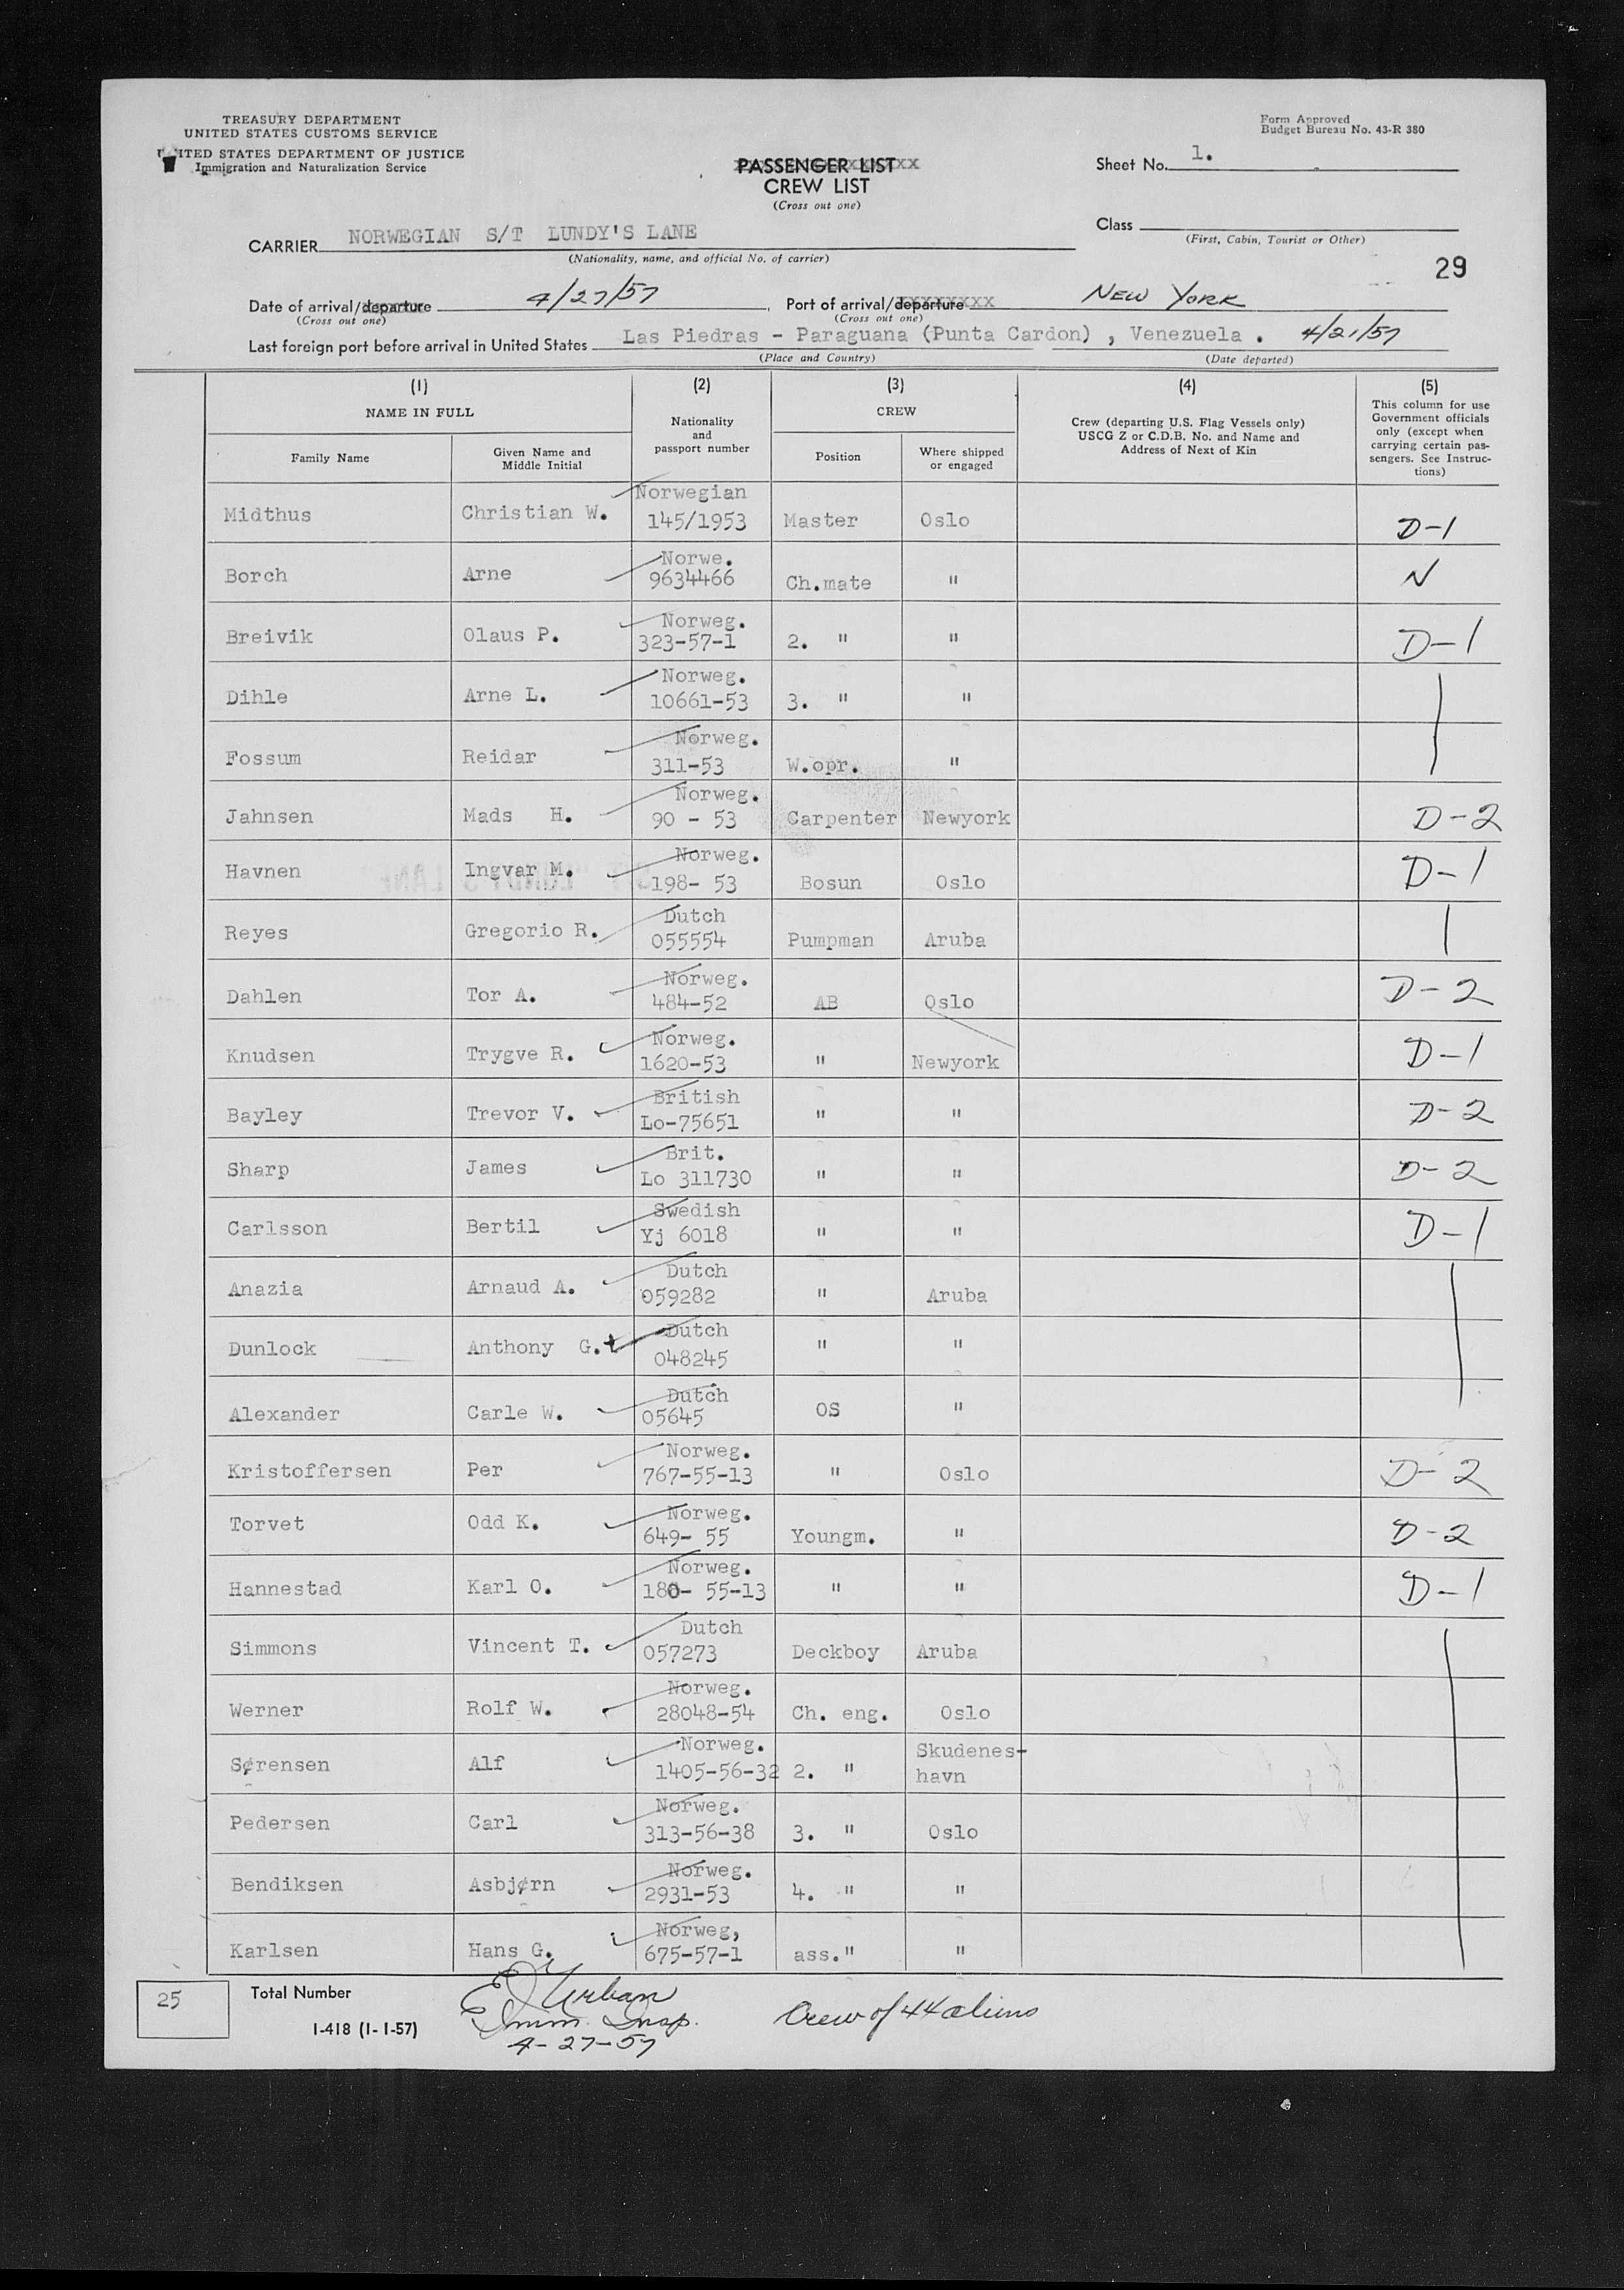 TREASURY DEPARTMENT
UNITED STATES CUSTOMS SERVICE
UNITED STATES DEPARTMENT OF JUSTICE
Immigration and Naturalization Service
Form Approved
Budget Bureau No. 43-R 380
PASSENGER LIST
CREW LIST
(Cross out one)
Sheet No. 1.
Class
(First, Cabin, Tourist or Other)
CARRIER NORWEGIAN S/T LUNDY'S LANE
(Nationality, name, and official No. of carrier)
29
Date of arrival/departure 4/27/57, Port of arrival/departure NEW YORK
(Cross out one) (Cross out one)
Last foreign port before arrival in United States Las Piedras - Paraguana (Punta Cardon) , Venezuela . 4/21/57
(Place and Country) (Date departed)
(1) (2) (3) (4) (5)
NAME IN FULL
Family Name
Given Name and Middle Initial
Nationality and passport number
CREW
Position
Where shipped or engaged
Crew (departing U.S. Flag Vessels only)
USCG Z or C.D.B. No. and Name and
Address of Next of Kin
This column for use
Government officials
only (except when
carrying certain pas-
sengers. See Instruc-
tions)
Midthus Christian W. Norwegian 145/1953 Master Oslo D-1
Borch Arne Norwe. 9634466 Ch.mate " N
Breivik Olaus P. Norweg. 323-57-1 2. " " D-1
Dihle Arne L. Norweg. 10661-53 3. " "
Fossum Reidar Norweg. 311-53 W.opr. "
Jahnsen Mads H. Norweg. 90 - 53 Carpenter Newyork D-2
Havnen Ingvar M. Norweg. 198- 53 Bosun Oslo D-1
Reyes Gregorio R. Dutch 055554 Pumpman Aruba
Dahlen Tor A. Norweg. 484-52 AB Oslo D-2
Knudsen Trygve R. Norweg. 1620-53 " Newyork D-1
Bayley Trevor V. British Lo-75651 " " D-2
Sharp James Brit. Lo 311730 " " D-2
Carlsson Bertil Swedish Yj 6018 " " D-1
Anazia Arnaud A. Dutch 059282 " Aruba
Dunlock Anthony G. Dutch 048245 " "
Alexander Carle W. Dutch 05645 OS "
Kristoffersen Per Norweg. 767-55-13 " Oslo D-2
Torvet Odd K. Norweg. 649- 55 Youngm. " D-2
Hannestad Karl O. Norweg. 180- 55-13 " " D-1
Simmons Vincent T. Dutch 057273 Deckboy Aruba
Werner Rolf W. Norweg. 28048-54 Ch. eng. Oslo
Sørensen Alf Norweg. 1405-56-32 2. " Skudenes-havn
Pedersen Carl Norweg. 313-56-38 3. " Oslo
Bendiksen Asbjørn Norweg. 2931-53 4. " "
Karlsen Hans G. Norweg, 675-57-1 ass." "
25 Total Number
I-418 (1-1-57)
E J Urban
Imm. Insp.
4-27-57
Crew of 44 aliens